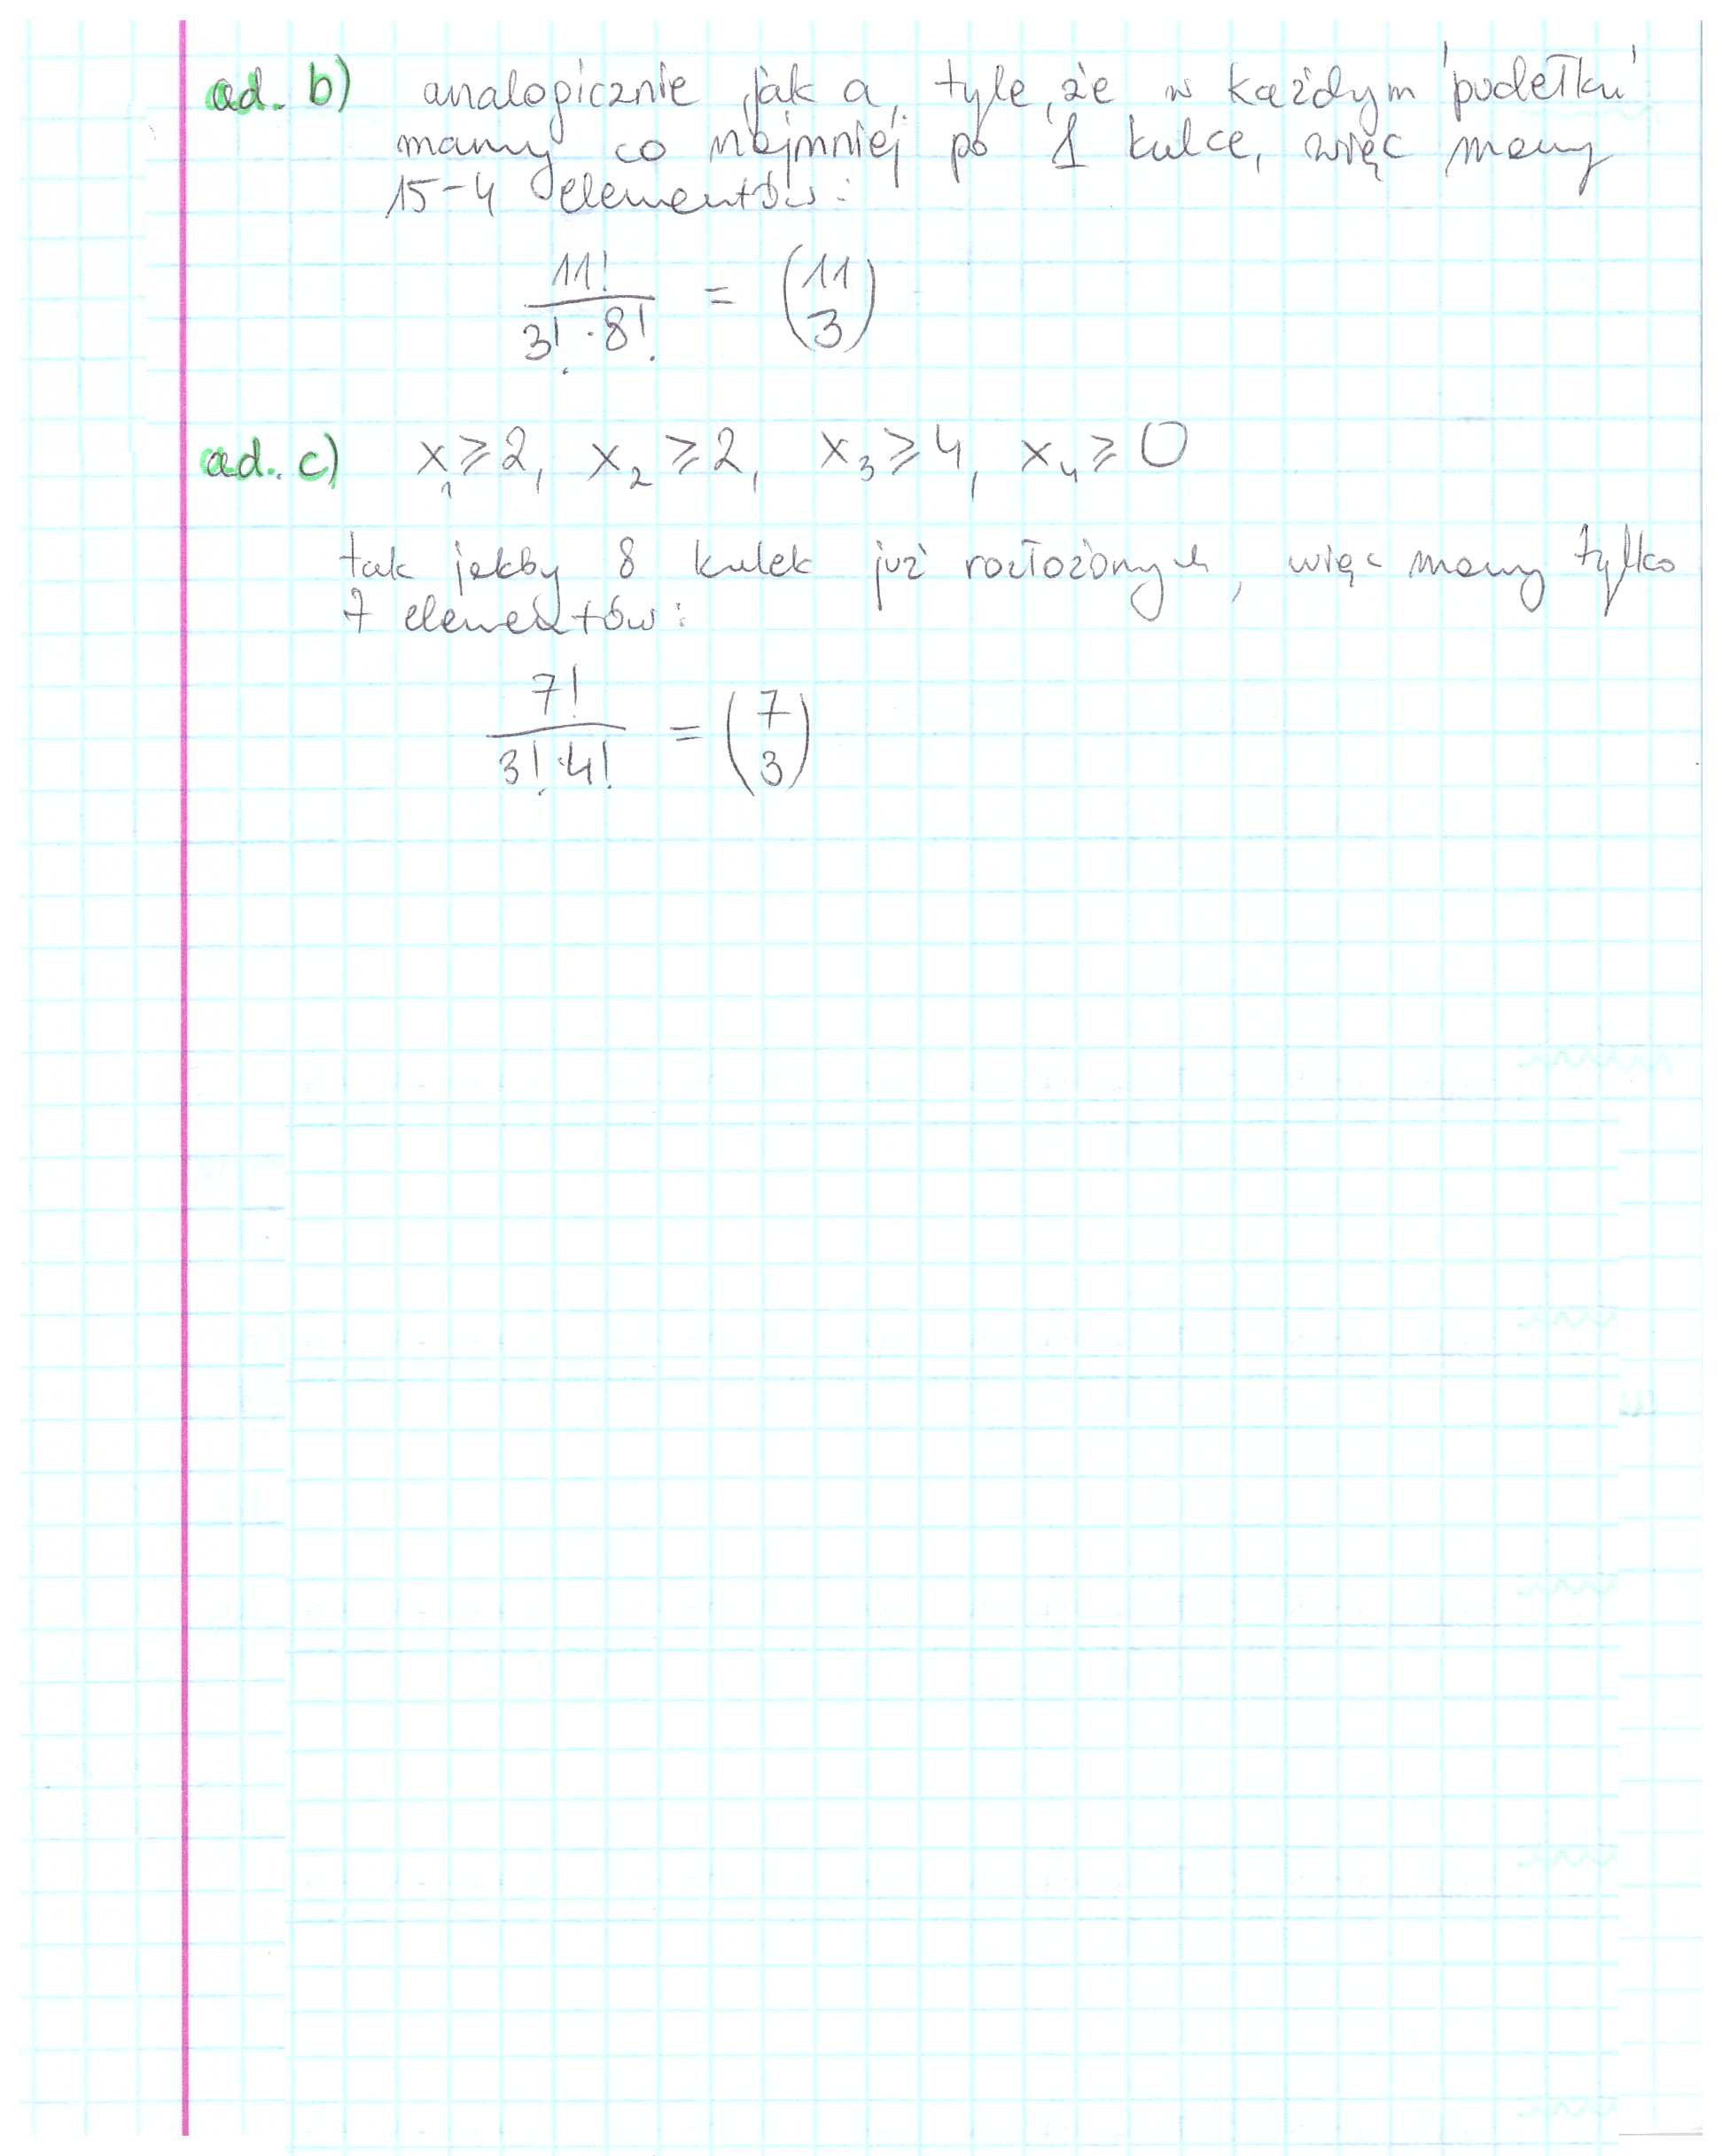 ad. b) analogicznie jak a, tyle, że w każdym 'pudełku'
mamy co najmniej po 1 kulce, więc mamy
15-4 elementów:
11! / 3! · 8! = (11 3)
ad. c) x₁ ≥ 2, x₂ ≥ 2, x₃ ≥ 4, x₄ ≥ 0
tak jakby 8 kulek już rozłożonych, więc mamy tylko
7 elementów:
7! / 3! · 4! = (7 3)